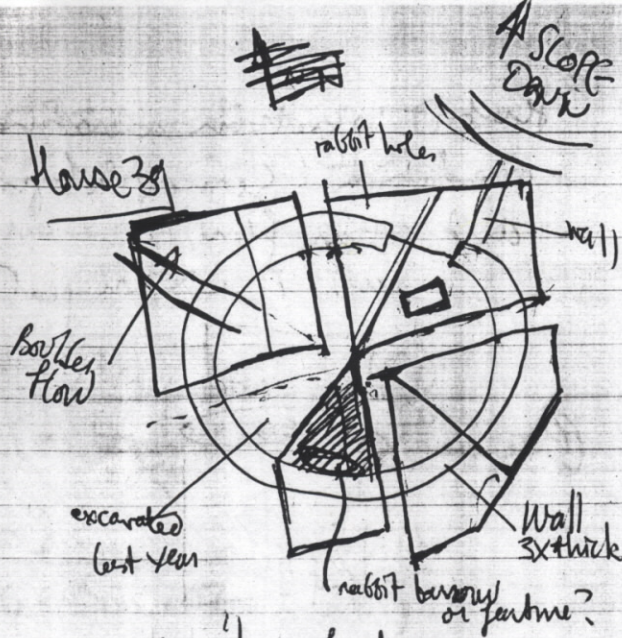 SLOPE
DOWN
rabbit holes
House 38
wall
Boulder
flow
excavated
last year
Wall
3X thick
rabbit burrows
or feature?